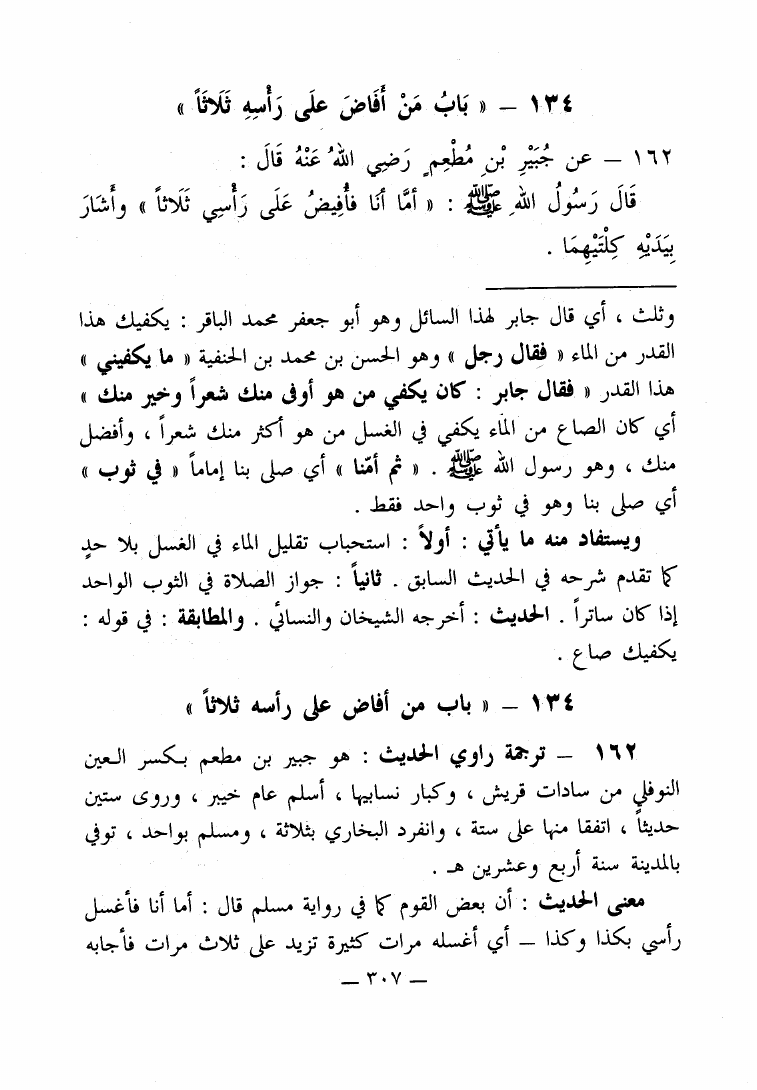 ١٣٤ – « بَابُ مَنْ أَفَاضَ عَلَى رَأْسِهِ ثَلَاثَاً »
١٦٢ – عن جُبَيْرِ بْنِ مُطْعِمٍ رَضِي اللهُ عَنْهُ قَالَ :
قَالَ رَسُولُ اللهِ ﷺ : « أمَّا أنَا فأُفِيضُ عَلَى رَأْسِي ثَلَاثاً » وأَشَارَ
بِيَدَيْهِ كِلْتَيْهِمَا .
وثلث ، أي قال جابر لهذا السائل وهو أبو جعفر محمد الباقر : يكفيك هذا
القدر من الماء « فقال رجل » وهو الحسن بن محمد بن الحنفية « ما يكفيني »
هذا القدر « فقال جابر : كان يكفي من هو أوفى منك شعراً وخير منك »
أي كان الصاع من الماء يكفي في الغسل من هو أكثر منك شعراً ، وأفضل
منك ، وهو رسول الله ﷺ . « ثم أمّنا » أي صلى بنا إماماً « في ثوب »
أي صلى بنا وهو في ثوب واحد فقط .
ويستفاد منه ما يأتي : أولاً : استحباب تقليل الماء في الغسل بلا حدٍ
كما تقدم شرحه في الحديث السابق . ثانياً : جواز الصلاة في الثوب الواحد
إذا كان ساتراً . الحديث : أخرجه الشيخان والنسائي . والمطابقة : في قوله :
يكفيك صاع .
١٣٤ – « باب من أفاض على رأسه ثلاثاً »
١٦٢ – ترجمة راوي الحديث : هو جبير بن مطعم بكسر العين
النوفلي من سادات قريش ، وكبار نسابيها ، أسلم عام خيبر ، وروى ستين
حديثاً ، اتفقا منها على ستة ، وانفرد البخاري بثلاثة ، ومسلم بواحد ، توفي
بالمدينة سنة أربع وعشرين هـ .
معنى الحديث : أن بعض القوم كما في رواية مسلم قال : أما أنا فأغسل
رأسي بكذا وكذا – أي أغسله مرات كثيرة تزيد على ثلاث مرات فأجابه
– ٣٠٧ –